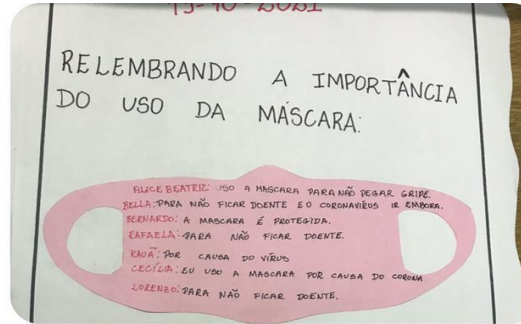 RELEMBRANDO A IMPORTÂNCIA
DO USO DA MÁSCARA:
ALICE BEATRIZ: USO A MASCARA PARA NÃO PEGAR GRIPE.
BELLA: PARA NÃO FICAR DOENTE E O CORONAVÍRUS IR EMBORA.
BERNARDO: A MASCARA É PROTEGIDA.
RAFAELA: PARA NÃO FICAR DOENTE.
KAUÃ: POR CAUSA DO VÍRUS
CECÍLIA: EU USO A MASCARA POR CAUSA DO CORONA
LORENZO: PARA NÃO FICAR DOENTE.